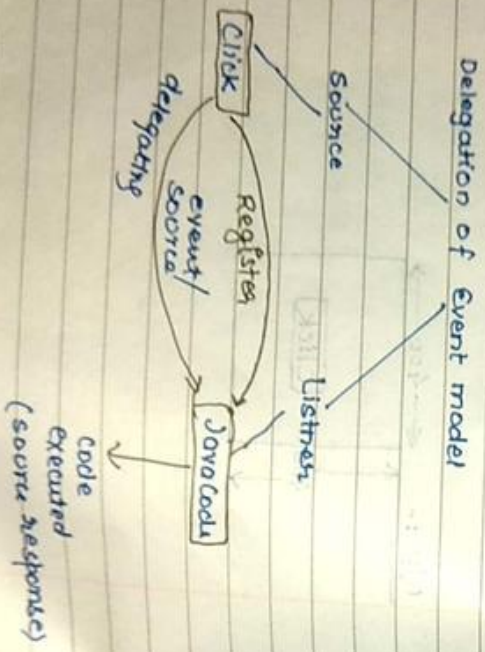 Delegation of Event model
Source
Listner
Click
Register
event/
source
delegating
JavaCode
code
executed
(source response)